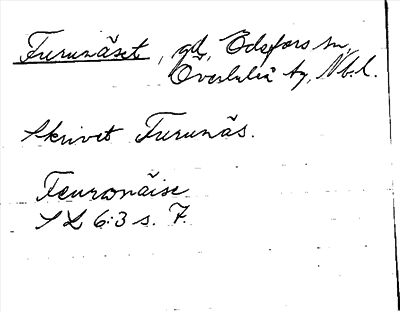 Furunäset, gd, Edefors sn,
Överluleå tg, Nb.l.
Skrivet Furunäs.
Feuronäise
SL 6:3 s. 7.